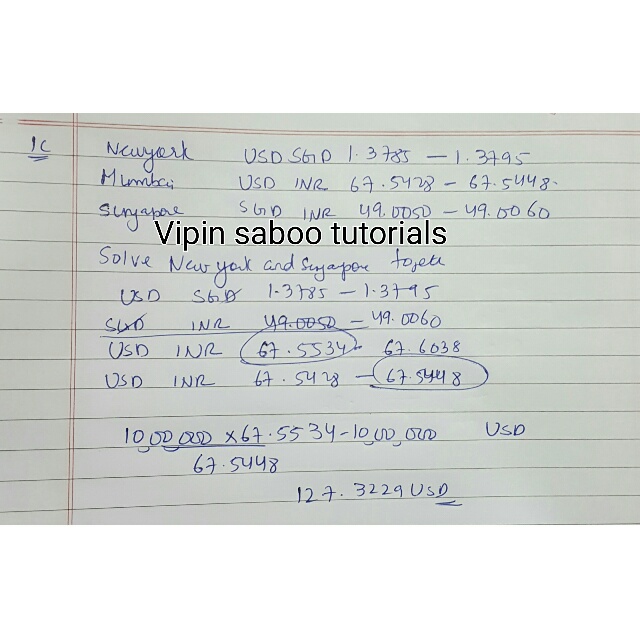 1C
Newyork USD SGD 1.3785 — 1.3795
Mumbai USD INR 67.5428 — 67.5448.
Singapore SGD INR 49.0050 — 49.0060
Vipin saboo tutorials
Solve New york and Singapore
USD SGD 1.3785 — 1.3795
SGD INR 49.0050 — 49.0060
USD INR 67.5534 — 67.6038
USD INR 67.5428 — 67.5448
10,00,000 × 67.5534 - 10,00,000 USD
67.5448
127.3229 USD